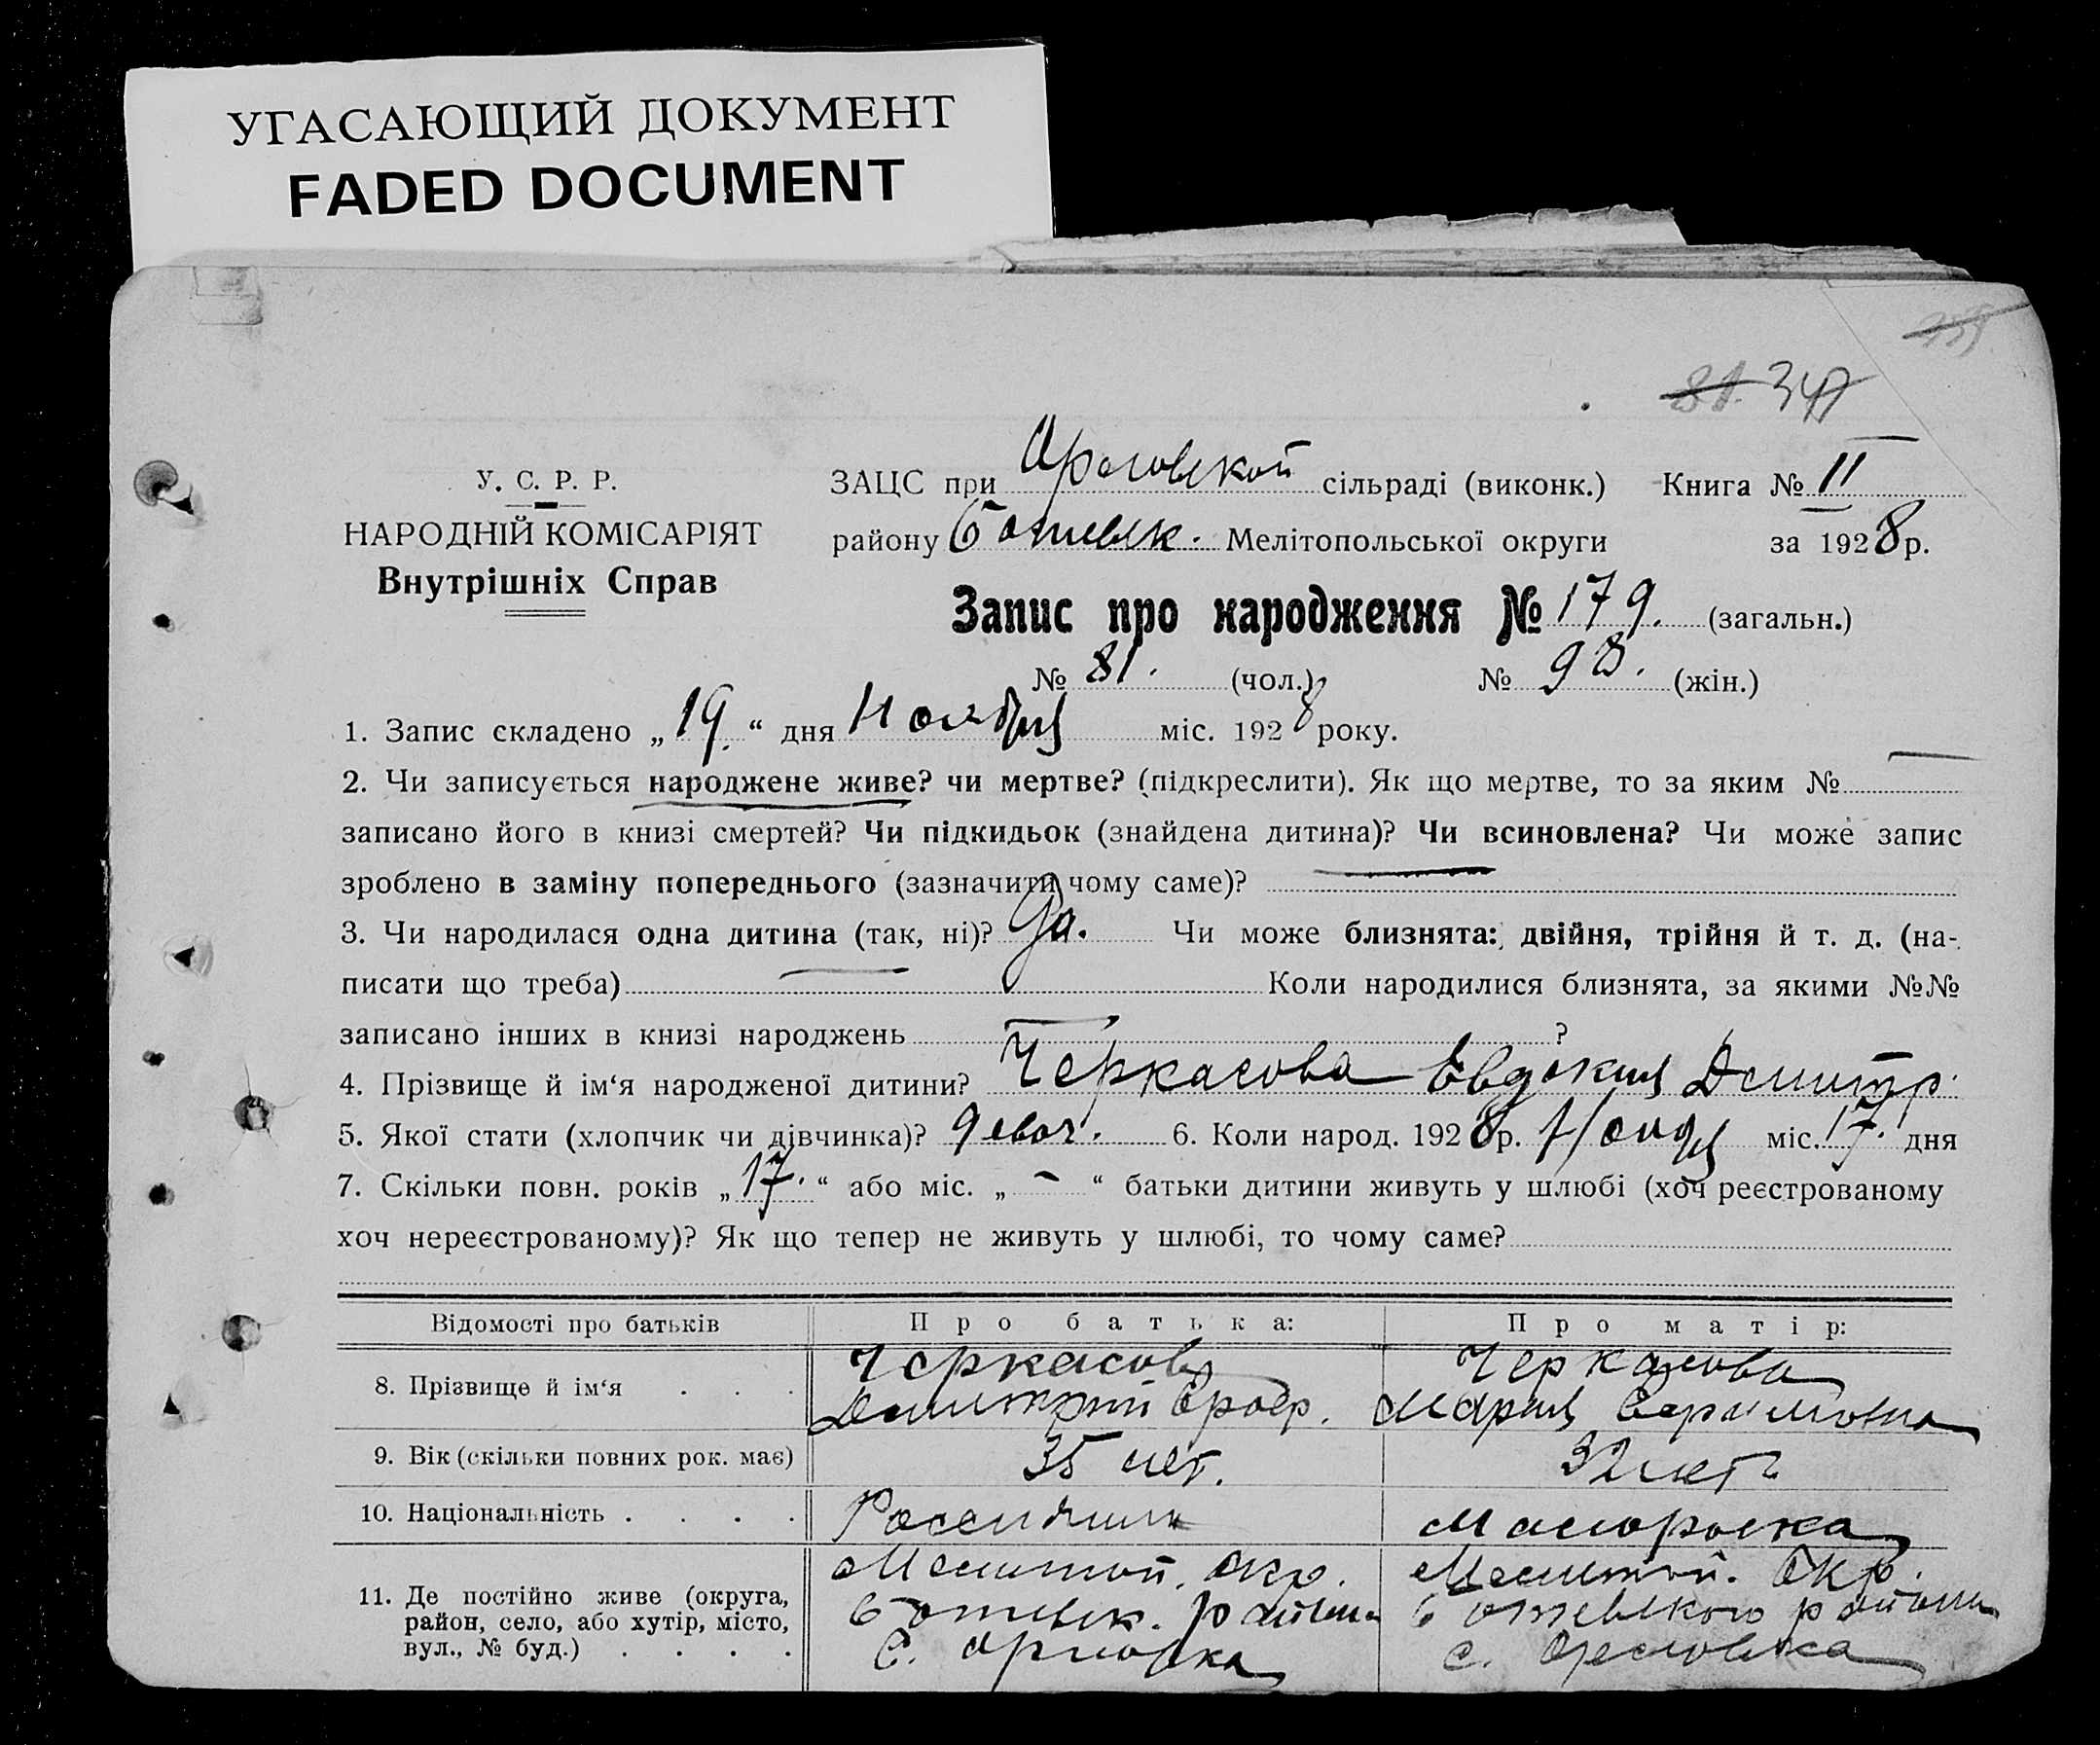 УГАСАЮЩИЙ ДОКУМЕНТ
FADED DOCUMENT
81. 347
У. С. Р. Р.
НАРОДНІЙ КОМІСАРІЯТ
Внутрішніх Справ
ЗАЦС при Орловской сільраді (виконк.) Книга № II
району Ботиевск. Мелітопольської округи за 1928 р.
Запис про народження № 179. (загальн.)
№ 81. (чол.) № 98. (жін.)
1. Запис складено „19.“ дня Ноября міс. 1928 року.
2. Чи записується народжене живе? чи мертве? (підкреслити). Як що мертве, то за яким № —
записано його в книзі смертей? Чи підкидьок (знайдена дитина)? Чи всиновлена? Чи може запис
зроблено в заміну попереднього (зазначити чому саме)? —
3. Чи народилася одна дитина (так, ні)? Да. Чи може близнята: двійня, трійня й т. д. (на-
писати що треба) — Коли народилися близнята, за якими №№
записано інших в книзі народжень — ?
4. Прізвище й ім‘я народженої дитини? Черкасова Евдокия Дмитр.
5. Якої стати (хлопчик чи дівчинка)? девоч. 6. Коли народ. 1928 р. міс. 17. дня
7. Скільки повн. років „17.“ або міс. „ - “ батьки дитини живуть у шлюбі (хоч реєстрованому
хоч нереєстрованому)? Як що тепер не живуть у шлюбі, то чому саме?
Відомості про батьків Про батька: Про матір:
8. Прізвище й ім‘я . . . Черкасов Черкасова
Дмитрий Мария
9. Вік (скільки повних рок. має) 35 лет. 32 лет
10. Національність . . . . Россиянин Малороска
11. Де постійно живе (округа, район, село, або хутір, місто, вул., № буд.) . . . . Мелитоп. окр. Мелитоп. Окр.
Ботиевск. района Ботиевского района
С. Орловка с. Орловка